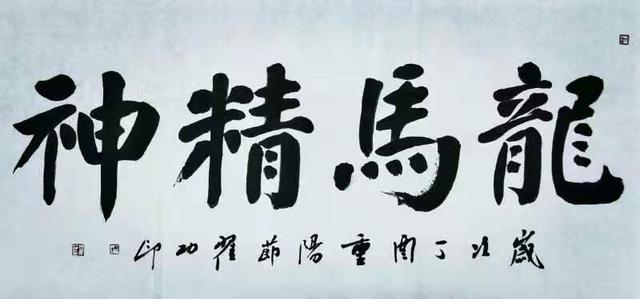 龍馬精神
歲次丁酉重陽節翟功印